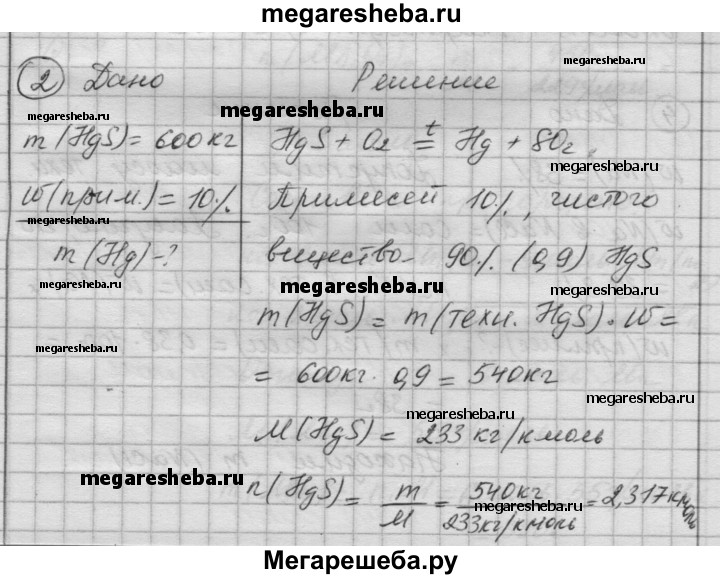 megaresheba.ru
② Дано Решение
megaresheba.ru
megaresheba.ru
megaresheba.ru
m(HgS)=600кг HgS + O₂ =ᵗ Hg + SO₂
W(прим.)=10% Примесей 10%, чистого
megaresheba.ru
m(Hg)-? вещества- 90% (0,9) HgS
megaresheba.ru
megaresheba.ru
m(HgS) = m(техн. HgS)·W =
megaresheba.ru
= 600кг · 0,9 = 540кг
megaresheba.ru
M(HgS) = 233 кг/кмоль
megaresheba.ru
megaresheba.ru
n(HgS) = m/M = 540кг/233кг/кмоль = 2,317кмоль
megaresheba.ru
Мегарешеба.ру